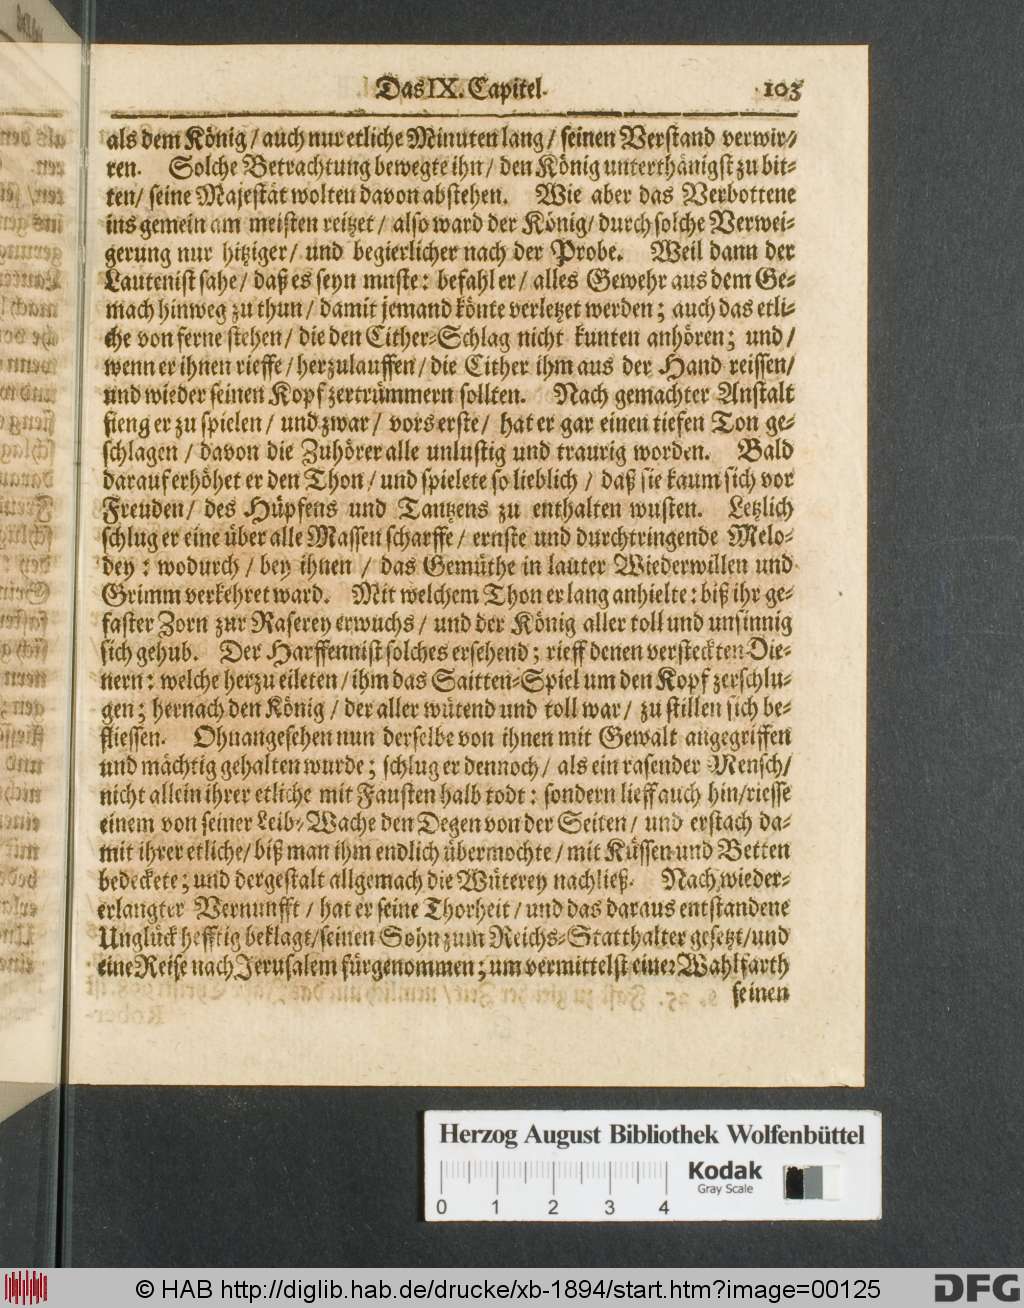 Das IX. Capitel. 103
als dem König / auch nur etliche Minuten lang / seinen Verstand verwir-
ren. Solche Betrachtung bewegte ihn / den König unterthänigst zu bit-
ten / seine Majestät wolten davon abstehen. Wie aber das Verbottene
ins gemein am meisten reitzet / also ward der König / durch solche Verwei-
gerung nur hitziger / und begierlicher nach der Probe. Weil dann der
Lautenist sahe / daß es seyn mnste: befahl er / alles Gewehr aus dem Ge-
mach hinweg zu thun / damit jemand könte verletzet werden; auch das etli-
che von ferne stehen / die den Cither-Schlag nicht kunten anhören; und /
wenn er ihnen rieffe / herzulauffen / die Cither ihm aus der Hand reissen /
und wieder seinen Kopf zertrümmern sollten. Nach gemachter Anstalt
fieng er zu spielen / und zwar / vors erste / hat er gar einen tiefen Ton ge-
schlagen / davon die Zuhörer alle unlustig und traurig worden. Bald
darauf erhöhet er den Thon / und spielete so lieblich / daß sie kaum sich vor
Freuden / des Hüpfens und Tantzens zu enthalten wusten. Letzlich
schlug er eine über alle Massen scharffe / ernste und durchtringende Melo-
dey: wodurch / bey ihnen / das Gemüthe in lauter Wiederwillen und
Grimm verkehret ward. Mit welchem Thon er lang anhielte: biß ihr ge-
faster Zorn zur Raserey erwuchs / und der König aller toll und unsinnig
sich gehub. Der Harffennist solches ersehend; rieff denen versteckten Die-
nern: welche herzu eileten / ihm das Saitten-Spiel um den Kopf zerschlu-
gen; hernach den König / der aller wütend und toll war / zu stillen sich be-
fliessen. Ohnangesehen nun derselbe von ihnen mit Gewalt angegriffen
und mächtig gehalten wurde; schlug er dennoch / als ein rasender Mensch /
nicht allein ihrer etliche mit Fausten halb todt: sondern lieff auch hin / riesse
einem von seiner Leib-Wache den Degen von der Seiten / und erstach da-
mit ihrer etliche / biß man ihm endlich übermochte / mit Küssen und Betten
bedeckete; und dergestalt allgemach die Wüterey nachließ. Nach wieder-
erlangter Vernunfft / hat er seine Thorheit / und das daraus entstandene
Unglück hefftig beklagt / seinen Sohn zum Reichs-Statthalter gesetzt / und
eine Reise nach Jerusalem fürgenommen; um vermittelst einer Wahlfarth
seinen
Herzog August Bibliothek Wolfenbüttel
Kodak
Gray Scale
0 1 2 3 4
© HAB http://diglib.hab.de/drucke/xb-1894/start.htm?image=00125
DFG